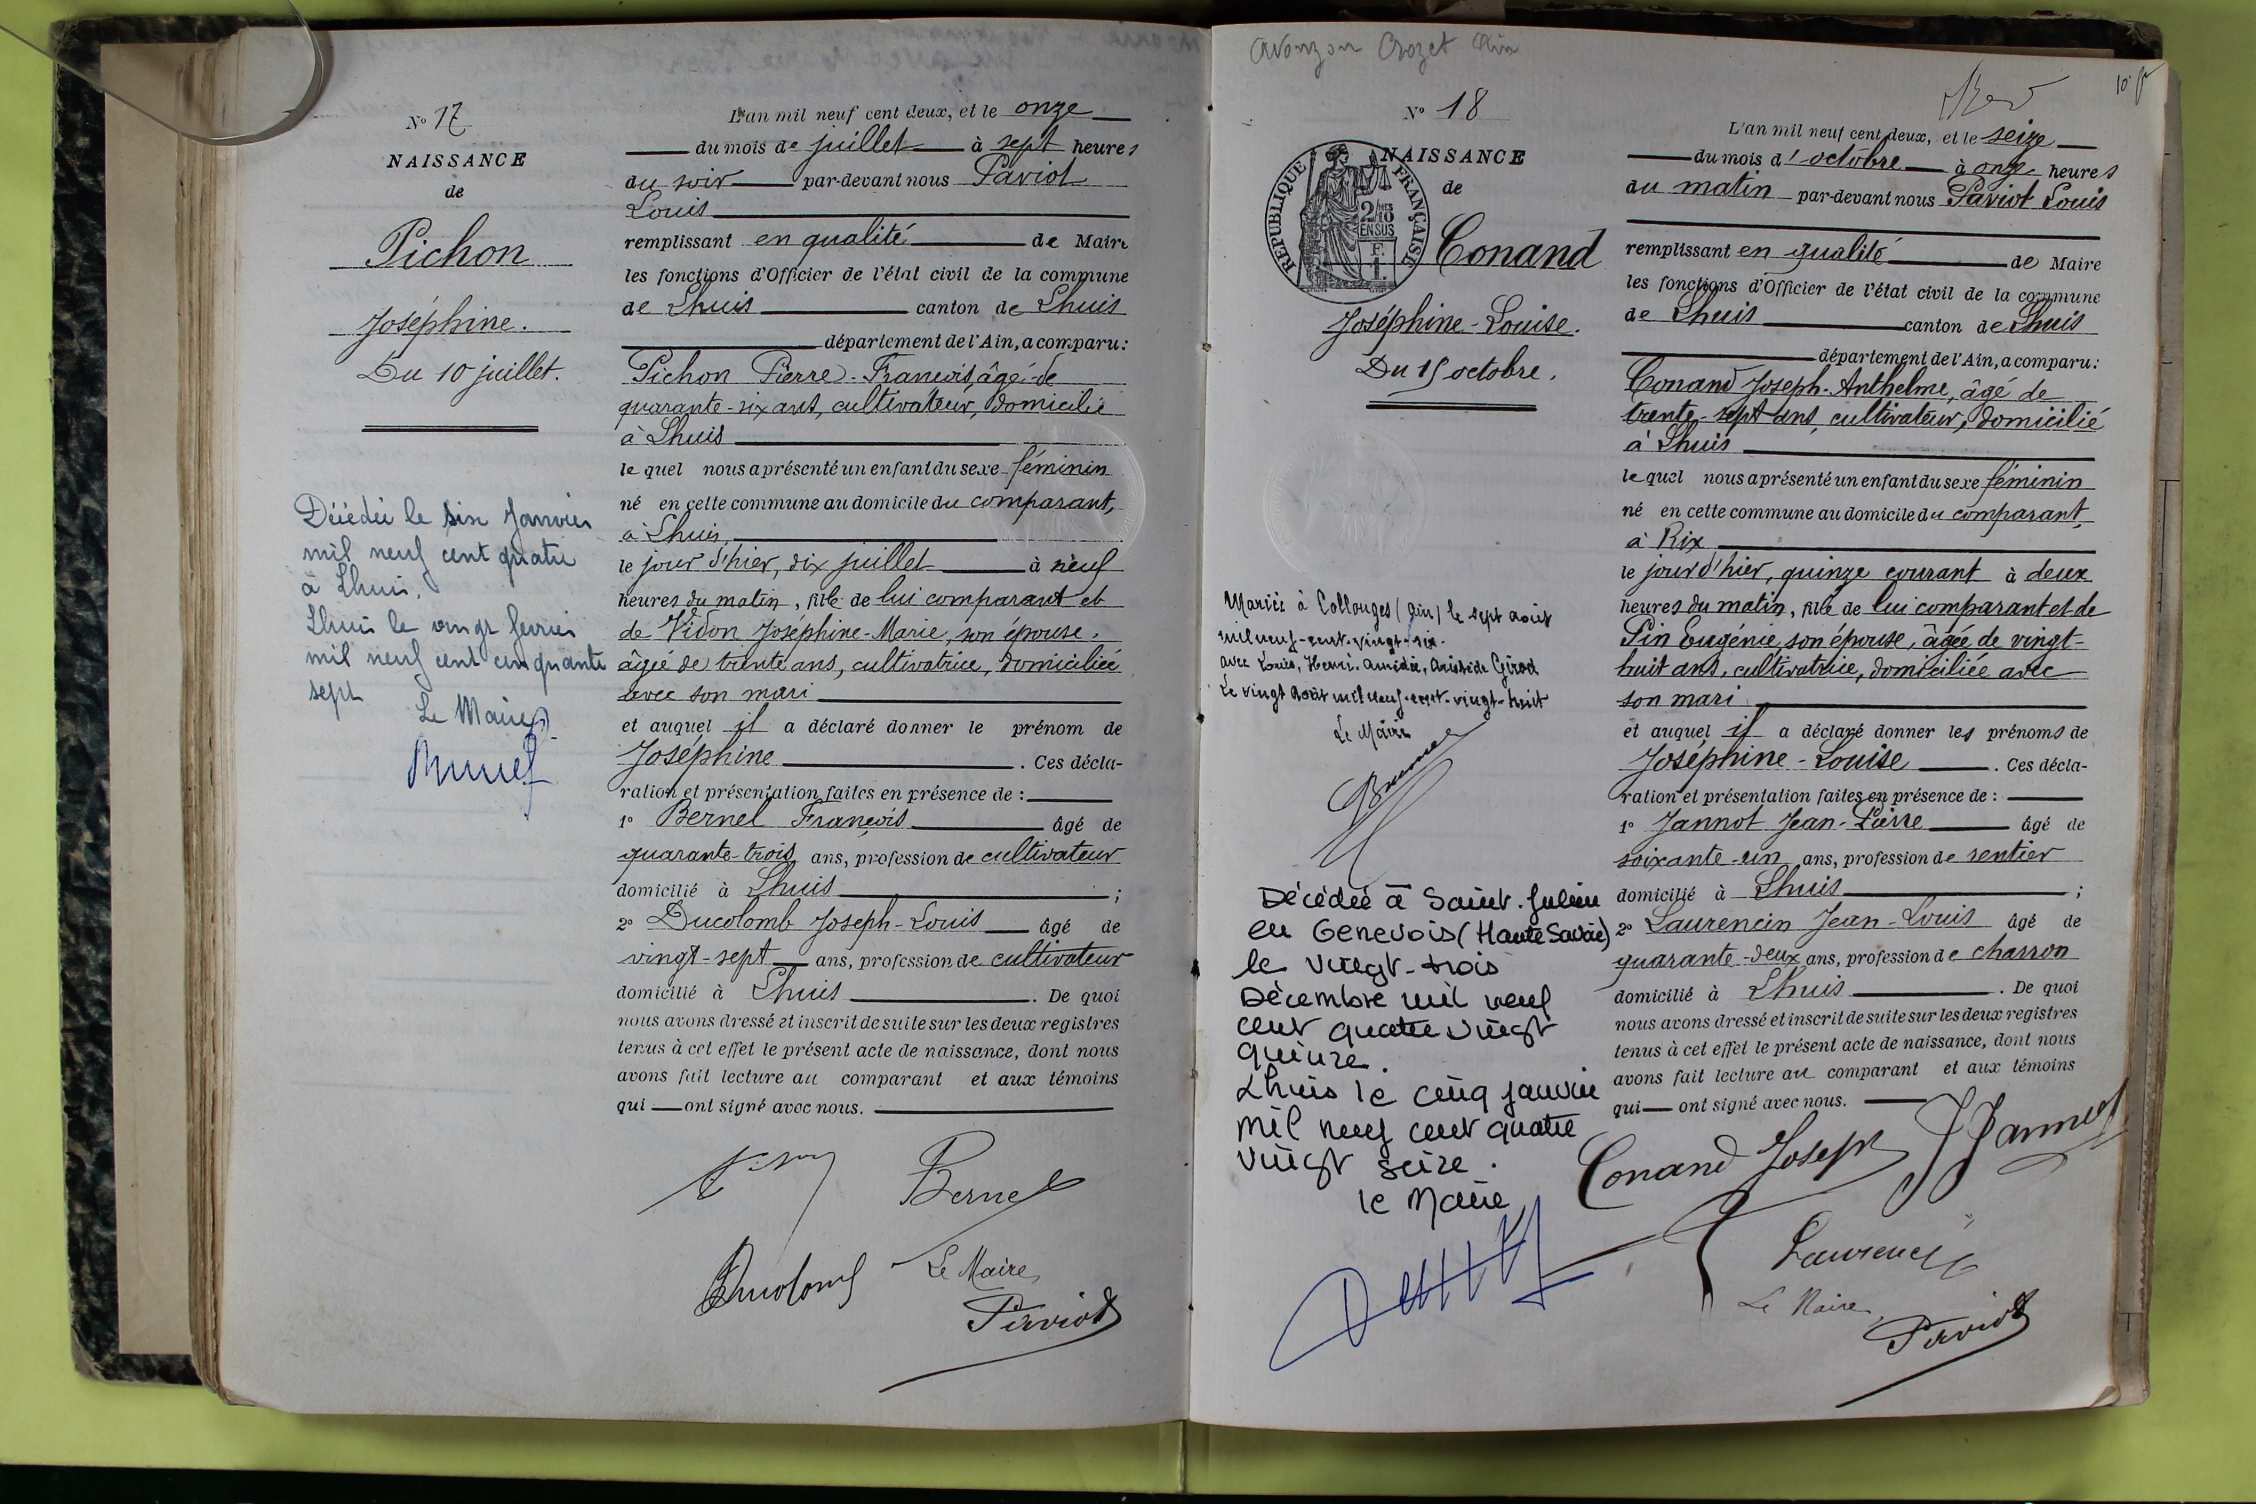 N° 17
NAISSANCE
de
Pichon
Joséphine.
Du 10 juillet.
Décédée le six Janvier
mil neuf cent quatre
à Lhuis,
Lhuis le vingt février
mil neuf cent cinquante
sept
Le Maire
L'an mil neuf cent deux, et le onze
du mois de juillet à sept heures
du soir par-devant nous Paviot
Louis
remplissant en qualité de Maire
les fonctions d'Officier de l'état civil de la commune
de Lhuis canton de Lhuis
département de l'Ain, a comparu:
Pichon Pierre-François, âgé de
quarante-six ans, cultivateur, domicilié
à Lhuis
lequel nous a présenté un enfant du sexe féminin
né en cette commune au domicile du comparant,
à Lhuis,
le jour d'hier, dix juillet à neuf
heures du matin, fille de lui comparant et
de Vidon Joséphine-Marie, son épouse,
âgée de trente ans, cultivatrice, domiciliée
avec son mari
et auquel il a déclaré donner le prénom de
Joséphine. Ces décla-
ration et présentation faites en présence de:
1° Bernel François âgé de
quarante-trois ans, profession de cultivateur
domicilié à Lhuis;
2° Ducolomb Joseph-Louis âgé de
vingt-sept ans, profession de cultivateur
domicilié à Lhuis. De quoi
nous avons dressé et inscrit de suite sur les deux registres
tenus à cet effet le présent acte de naissance, dont nous
avons fait lecture au comparant et aux témoins
qui ont signé avec nous.
Bernel
Ducolomb
Le Maire,
Paviot
Avonzon Crozet Ain
N° 18
NAISSANCE
de
RÉPUBLIQUE FRANÇAISE
2/10 MES
EN SUS
F.
1.
Conand
Joséphine-Louise.
Du 15 octobre.
Mariée à Collonges (Ain) le sept août
mil neuf-cent-vingt-six.
avec Louis, Henri, Amédée, Aristide Girod
Le vingt Août mil neuf-cent-vingt-huit
Le Maire
Décédée à Saint-Julien
en Genevois (Haute Savoie)
le vingt-trois
Décembre mil neuf
cent quatre vingt
quinze.
Lhuis le cinq janvier
mil neuf cent quatre
vingt seize.
le Maire
10 f
L'an mil neuf cent deux, et le seize
du mois d'octobre à onze heures
du matin par-devant nous Paviot Louis
remplissant en qualité de Maire
les fonctions d'Officier de l'état civil de la commune
de Lhuis canton de Lhuis
département de l'Ain, a comparu:
Conand Joseph-Anthelme, âgé de
trente-sept ans, cultivateur, domicilié
à Lhuis
lequel nous a présenté un enfant du sexe féminin
né en cette commune au domicile du comparant,
à Rix
le jour d'hier, quinze courant à deux
heures du matin, fille de lui comparant et de
Pin Eugénie, son épouse, âgée de vingt-
huit ans, cultivatrice, domiciliée avec
son mari
et auquel il a déclaré donner les prénoms de
Joséphine-Louise. Ces décla-
ration et présentation faites en présence de:
1° Jannot Jean-Pierre âgé de
soixante-un ans, profession de rentier
domicilié à Lhuis;
2° Laurencin Jean-Louis âgé de
quarante-deux ans, profession de charron
domicilié à Lhuis. De quoi
nous avons dressé et inscrit de suite sur les deux registres
tenus à cet effet le présent acte de naissance, dont nous
avons fait lecture au comparant et aux témoins
qui ont signé avec nous.
Conand Joseph
J Jannot
Laurencin
Le Maire,
Paviot